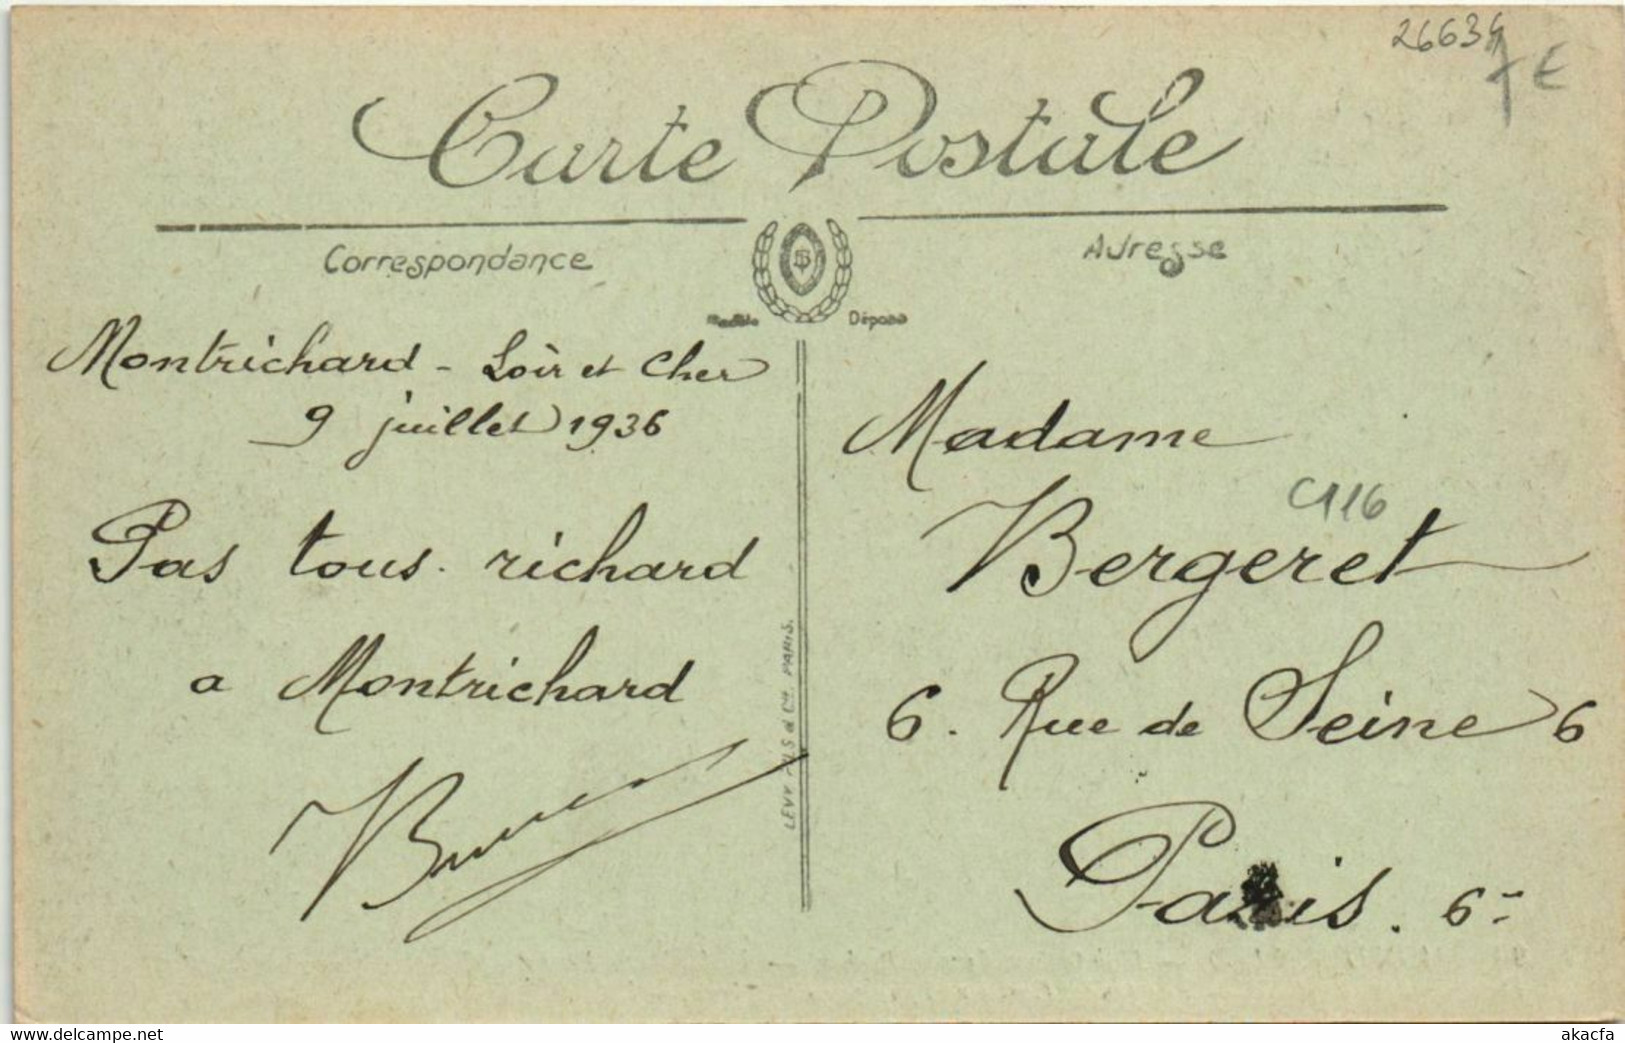 26634
7 €
Carte Postale
Correspondance
Adresse
Modèle Déposé
Montrichard - Loir et Cher
9 juillet 1936
Pas tous. richard
a Montrichard
LEVY FILS & Cie PARIS.
Madame
C116
Bergeret
6. Rue de Seine 6
Paris. 6e
www.delcampe.net
akacfa